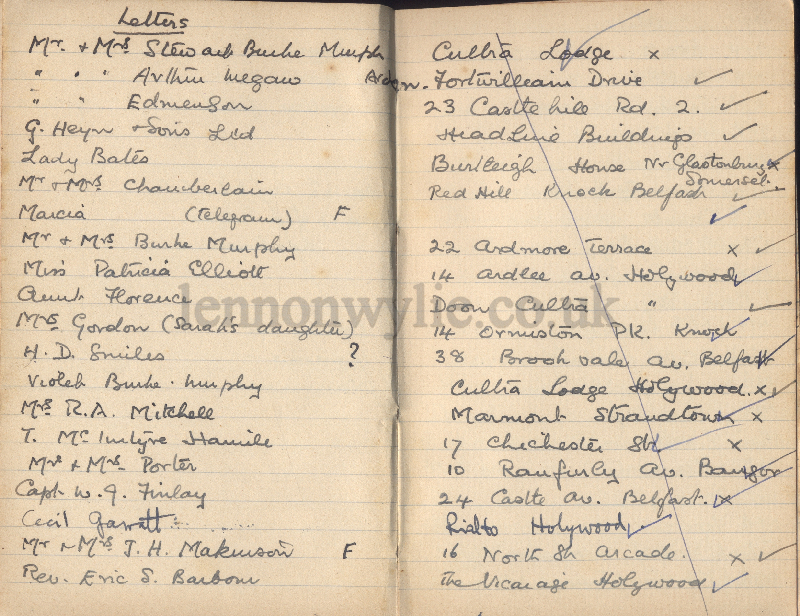 Letters
Mr. + Mrs Stewart Burke Murph
" " " Arthur Megaw
" " Edmenson
G. Heyn + Sons Ltd
Lady Bates
Mr + Mrs Chamberlain
Marcia (Telegram) F
Mr + Mrs Burke Murphy
Miss Patricia Elliott
Aunt Florence
Mrs Gordon (Sarah's daughter)
H. D. Smiles ?
Violet Burke-Murphy
Mrs R.A. Mitchell
T. McIntyre Hamill
Mr + Mrs Porter
Capt. W. J. Finlay
Cecil Garratt
Mr + Mrs J. H. Makinson F
Rev. Eric S. Barbour
Cultra Lodge x
Arden. Fortwilliam Drive ✓
23 Castle hill Rd. 2. ✓
Head Line Buildings ✓
Burleigh House Nr Glastonbury x
Somerset.
Red Hill Knock Belfast ✓
✓
22 Ardmore Terrace x ✓
14 Ardlee Av. Holywood ✓
Doon Cultra " ✓
14 Ormiston Pk. Knock ✓
38 Brookvale Av. Belfast
Cultra Lodge Holywood. x
Marmont Strandtown x
17 Chichester St. x
10 Ranfurly Av. Bangor
24 Castle Av. Belfast. x
Rialto Holywood ✓
16 North St Arcade. x ✓
The Vicarage Holywood ✓
lennonwylie.co.uk